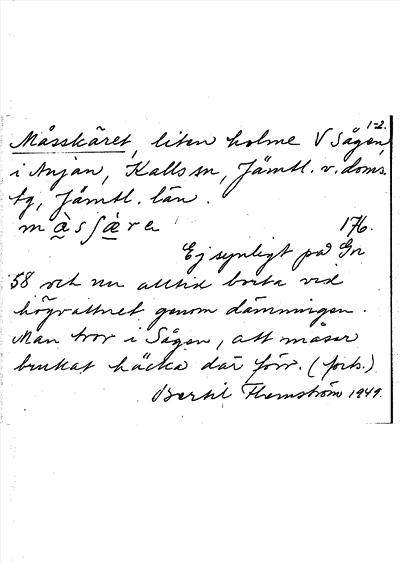 1-2.
Måsskäret, liten holme V Sågen,
i Anjan, Kalls sn, Jämtl. v. doms.
tg, Jämtl. län.
176.
Ej synligt på Gn
58 och nu alltid borta vid
högvattnet genom dämningen.
Man tror i Sågen, att måsar
brukat häcka där förr. (forts.)
Bertil Flemström 1949.